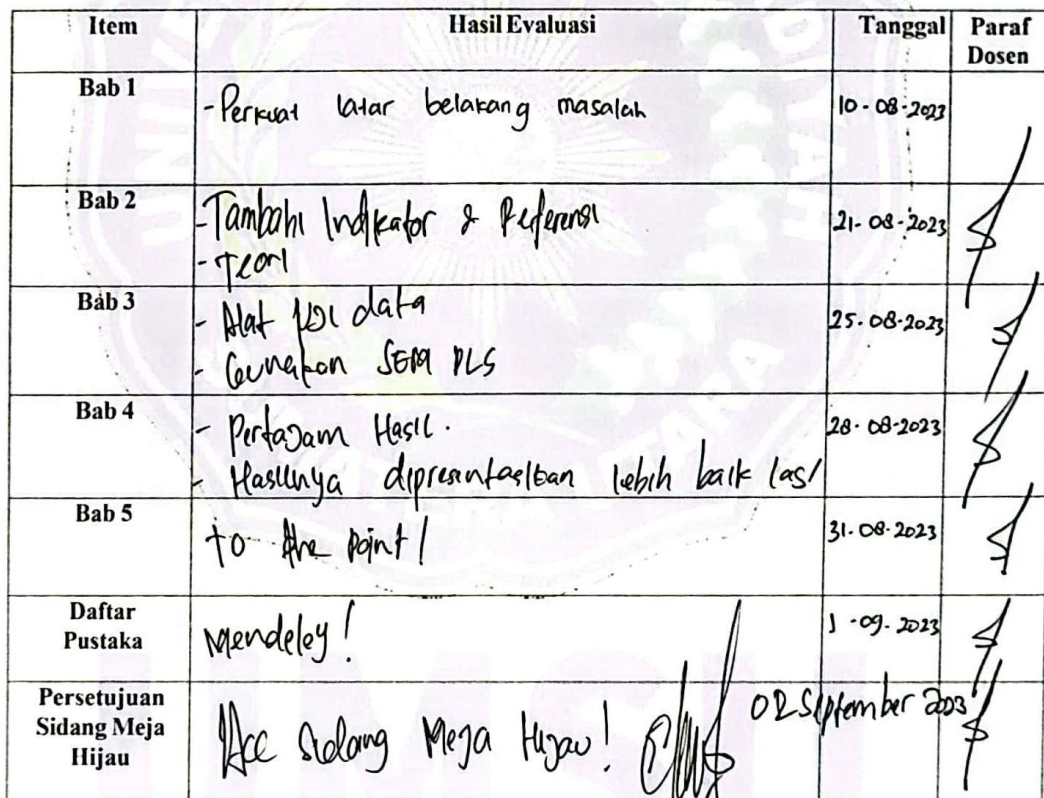 Item Hasil Evaluasi Tanggal Paraf Dosen
Bab 1
- Perkuat latar belakang masalah 10-08-2023
Bab 2
- Tambahi Indikator & Referensi 21-08-2023
- Teori
Bab 3
- Alat uji data 25-08-2023
- Gunakan SEM PLS
Bab 4
- Pertajam Hasil. 28-08-2023
- Hasilnya dipresentasikan lebih baik lagi
Bab 5
to the point! 31-08-2023
Daftar Pustaka
Mendeley! 1-09-2023
Persetujuan Sidang Meja Hijau
Acc Sidang Meja Hijau! 02 September 2023
UMSU